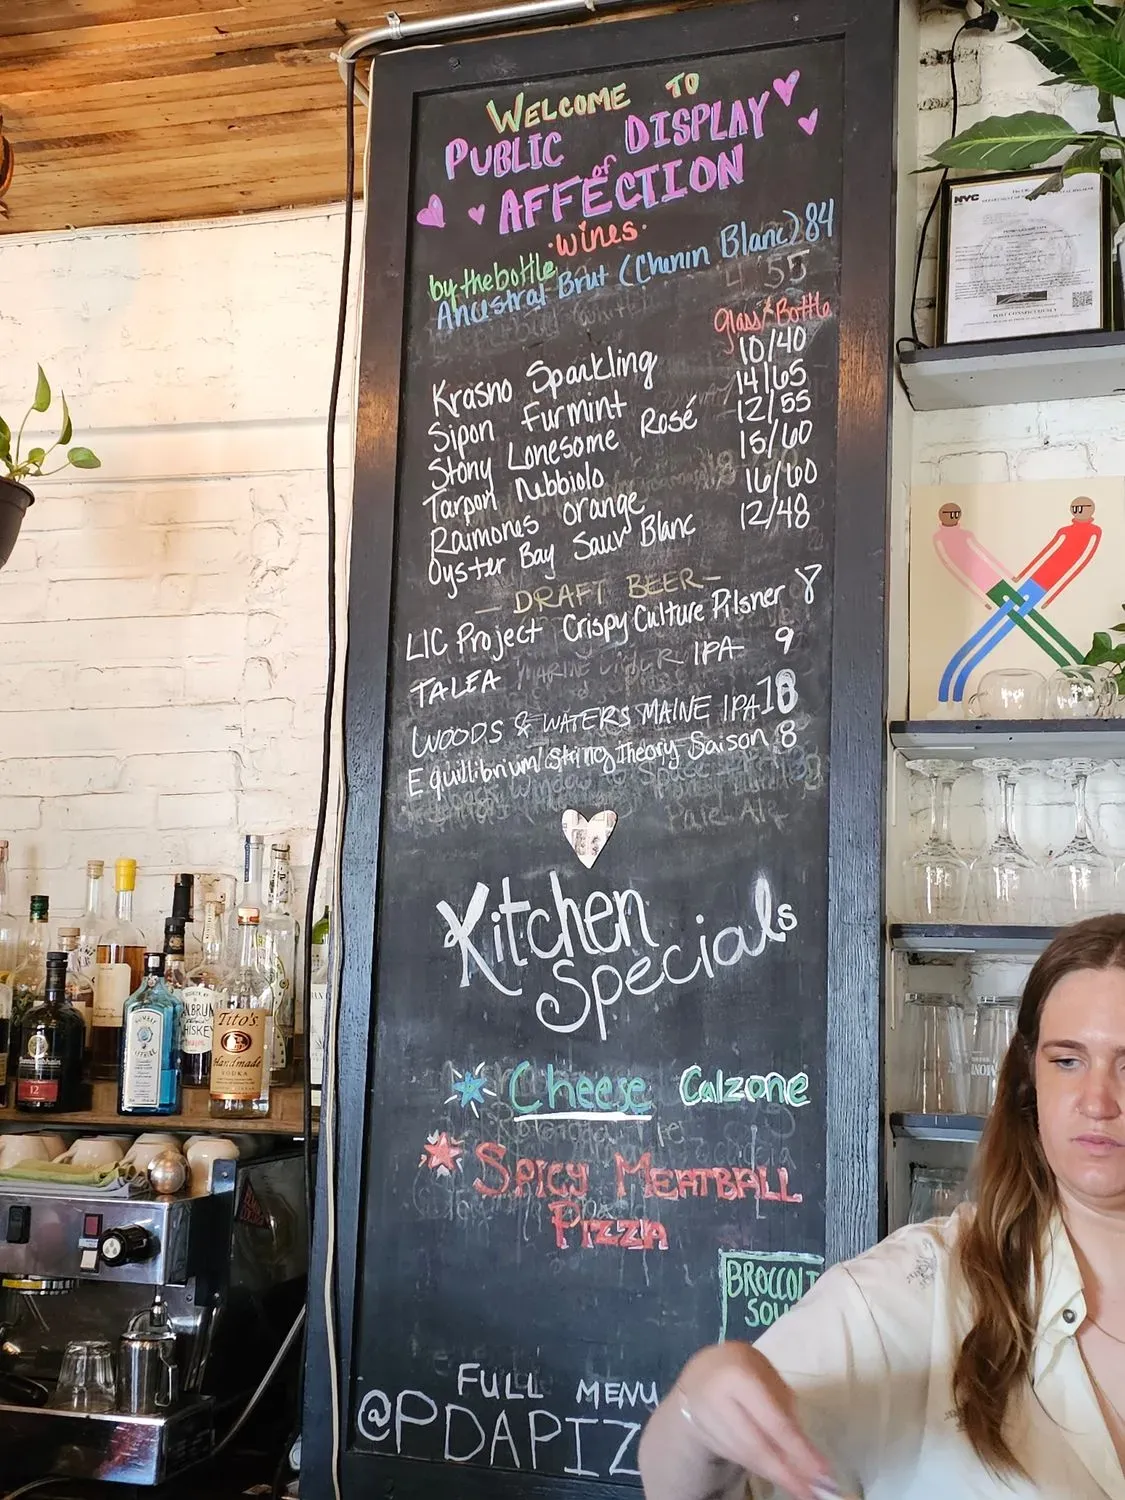 WELCOME TO
PUBLIC DISPLAY
of
AFFECTION
·wines·
by the bottle
Ancestral Brut (Chenin Blanc) 84
Glass/Bottle
Krasno Sparkling 10/40
Sipon Furmint 14/65
Stony Lonesome Rosé 12/55
Tarpon Nebbiolo 15/60
Raimones orange 16/60
Oyster Bay Sauv Blanc 12/48
— DRAFT BEER —
LIC Project Crispy Culture Pilsner 8
TALEA IPA 9
WOODS & WATERS MAINE IPA
Equilibrium/String Theory Saison 8
Kitchen
Specials
Cheese Calzone
SPICY MEATBALL
PIZZA
BROCCOLI
SOU
FULL MENU
@PDAPIZ
NYC
POST CONSPICUOUSLY
BOMBAY
SAPPHIRE
Tito's
Handmade
VODKA
12